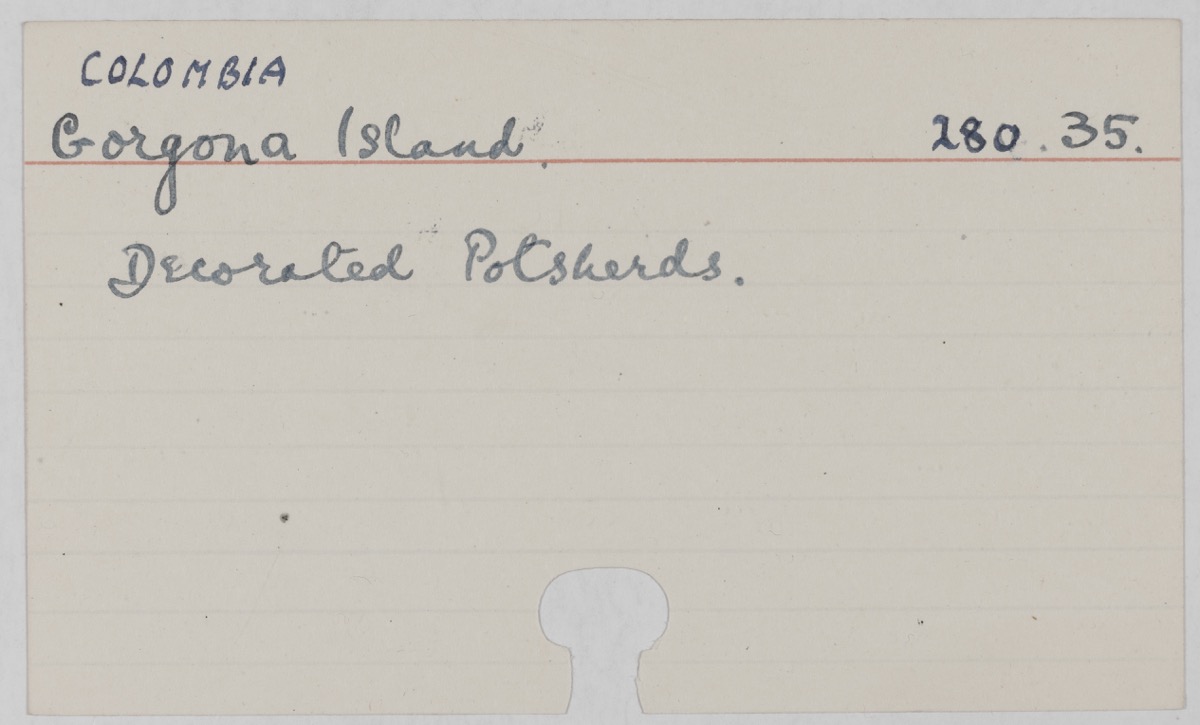 COLOMBIA
Gorgona Island. 280.35.
Decorated Potsherds.